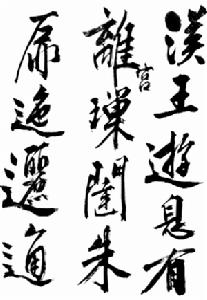 漢王遊息有
離宮瑣闥朱
扉迤邐通